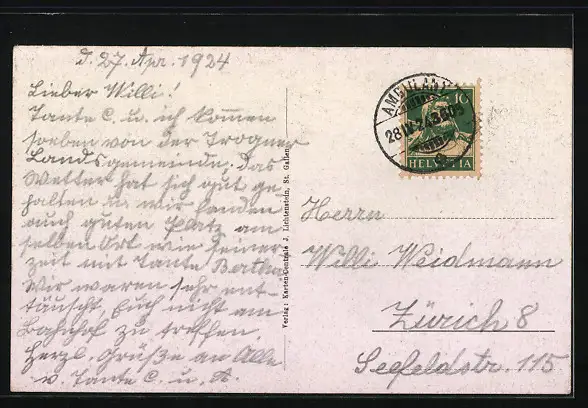 d. 27. Apr. 1924
Lieber Willi!
Tante C. u. ich kommen
soeben von der Trogner
Landsgemeinde. Das
Wetter hat sich gut ge
halten u. wir fanden
auch guten Platz am
selben Ort wie seiner
zeit mit Tante Bertha.
Wir waren sehr ent-
täuscht, Euch nicht am
Bahnhof zu treffen.
Herzl. Grüße an Alle
v. Tante C. u. A.
Verlag: Karten-Centrale J. Lichtenstein, St. Gallen
AMBULANT
28.IV.24
10
HELVETIA
Herrn
Willi Weidmann
Zürich 8
Seefeldstr. 115